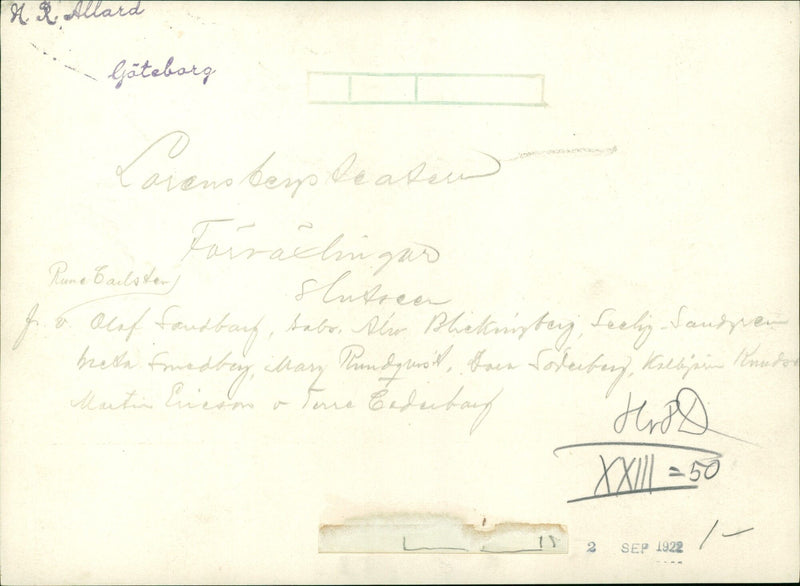 N. R. Allard
Göteborg
Lorensbergsteatern
Förväxlingar
Slutscen
Rune Carlsten
fr. v Olof Sandborg, Blickingberg, Seelig-Sandgren
Smedberg, Mary Rundqvist, Dora Söderberg, Kolbjörn Knuds
Martin Ericson o Torre Cederborg
XXIII = 50
2 SEP 1922 1-